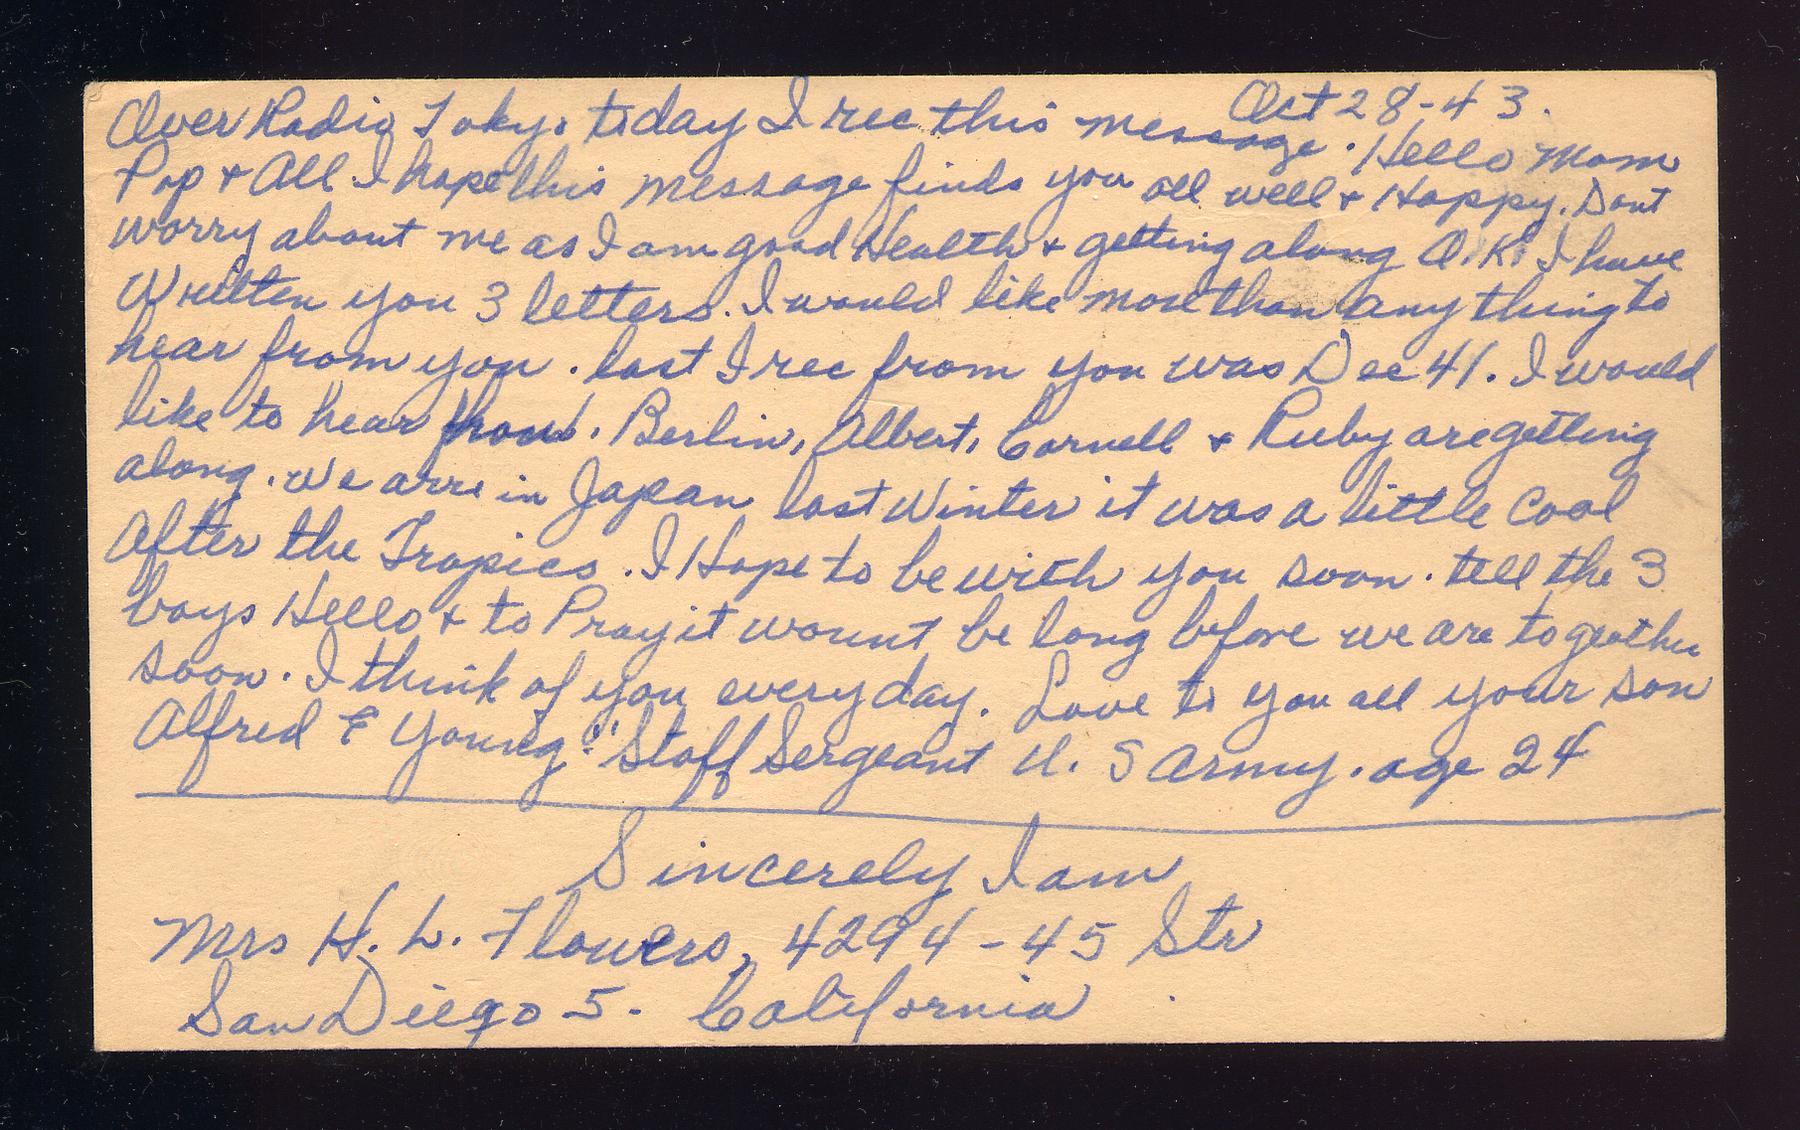 Oct 28-43.
Over Radio Tokyo today I rec this message. Hello Mom
Pop + All I hope this message finds you all well + Happy. Dont
worry about me as I am good Health + getting along O.K. I have
Written you 3 letters. I would like more than any thing to
hear from you. last I rec from you was Dec 41. I would
like to hear how. Berlin, Albert, Cornell + Ruby are getting
along. We arre in Japan last Winter it was a little Cool
After the Tropics. I Hope to be with you soon. tell the 3
boys Hello + to Pray it wount be long before we are to geather
soon. I think of you every day. Love to you all your son
Alfred E Young." Staff Sergeant U. S Army. age 24
Sincerely I am
Mrs H. L. Flowers, 4294-45 Str
San Diego 5. California